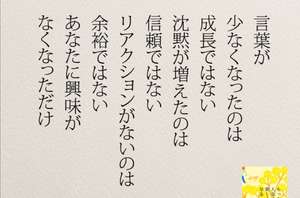 言葉が
少なくなったのは
成長ではない
沈黙が増えたのは
信頼ではない
リアクションがないのは
余裕ではない
あなたに興味が
なくなっただけ